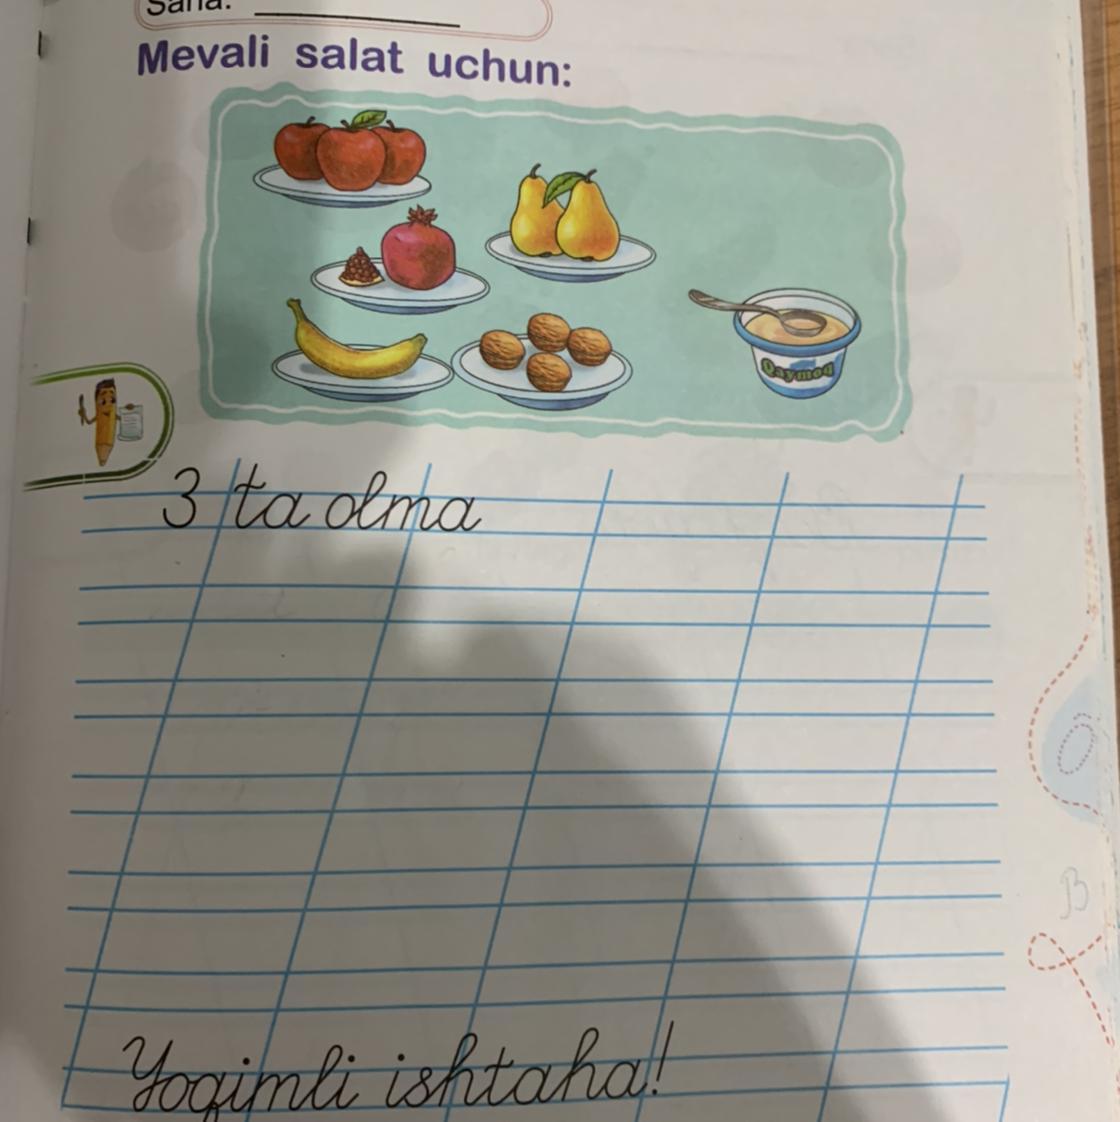 Sana:
Mevali salat uchun:
Qaymoq
3 ta olma
Yoqimli ishtaha!